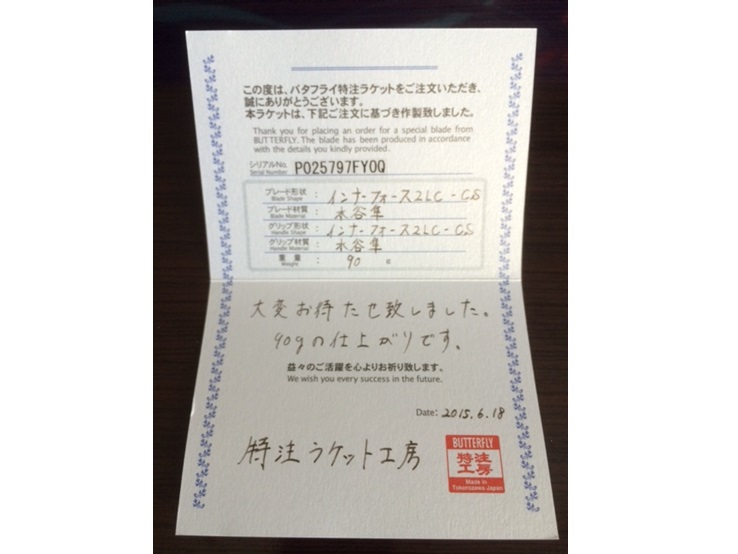 この度は、バタフライ特注ラケットをご注文いただき、
誠にありがとうございます。
本ラケットは、下記ご注文に基づき作製致しました。
Thank you for placing an order for a special blade from
BUTTERFLY. The blade has been produced in accordance
with the details you kindly provided.
シリアルNo. P025797FY0Q
Serial Number
ブレード形状 : インナーフォース2LC-CS
Blade Shape
ブレード材質 : 水谷隼
Blade Material
グリップ形状 : インナーフォース2LC-CS
Handle Shape
グリップ材質 : 水谷隼
Handle Material
重量 : 90 g
Weight
大変お待たせ致しました。
90gの仕上がりです。
益々のご活躍を心よりお祈り致します。
We wish you every success in the future.
Date: 2015.6.18
特注ラケット工房
BUTTERFLY
特注
工房
Made in
Tokorozawa Japan